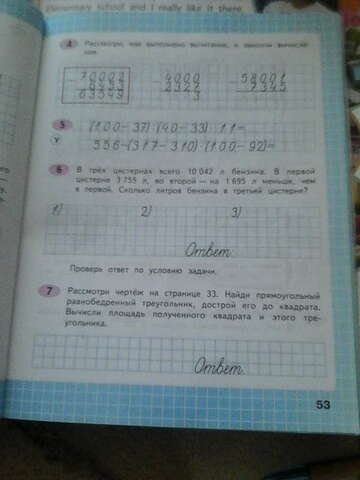 Elementary school and I really like it there
4 Рассмотри, как выполнено вычитание, и закончи вычисления.
4000
2327
3
58001
7345
63549
5 (100-37)·(40-33)·11=
556-(317-310)·(100-92)=
6 В трёх цистернах всего 10 042 л бензина. В первой
цистерне 3 755 л, во второй — на 1 695 л меньше, чем
в первой. Сколько литров бензина в третьей цистерне?
1) 2) 3)
Ответ:
Проверь ответ по условию задачи.
7 Рассмотри чертёж на странице 33. Найди прямоугольный
равнобедренный треугольник, дострой его до квадрата.
Вычисли площадь полученного квадрата и этого тре-
угольника.
Ответ:
53